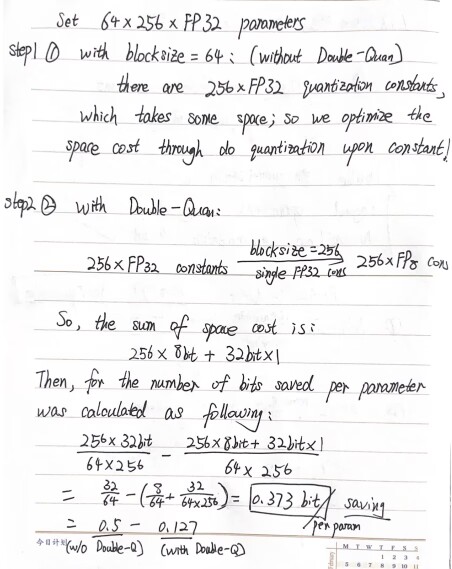 Set 64×256×FP32 parameters
step1 ① with blocksize = 64: (without Double-Quan)
there are 256×FP32 quantization constants,
which takes some space; so we optimize the
space cost through do quantization upon constant!
step2 ② with Double-Quan:
256×FP32 constants blocksize=256 single FP32 cons 256×FP8 cons
So, the sum of space cost is:
256×8bit + 32bit×1
Then, for the number of bits saved per parameter
was calculated as following:
256×32bit / 64×256 − 256×8bit+32bit×1 / 64×256
= 32/64 − (8/64 + 32/64×256) = 0.373 bit / saving
= 0.5 − 0.127 per param
今日计划 (w/o Double-Q) (with Double-Q)
February M T W T F S S
1 2 3 4
5 6 7 8 9 10 11